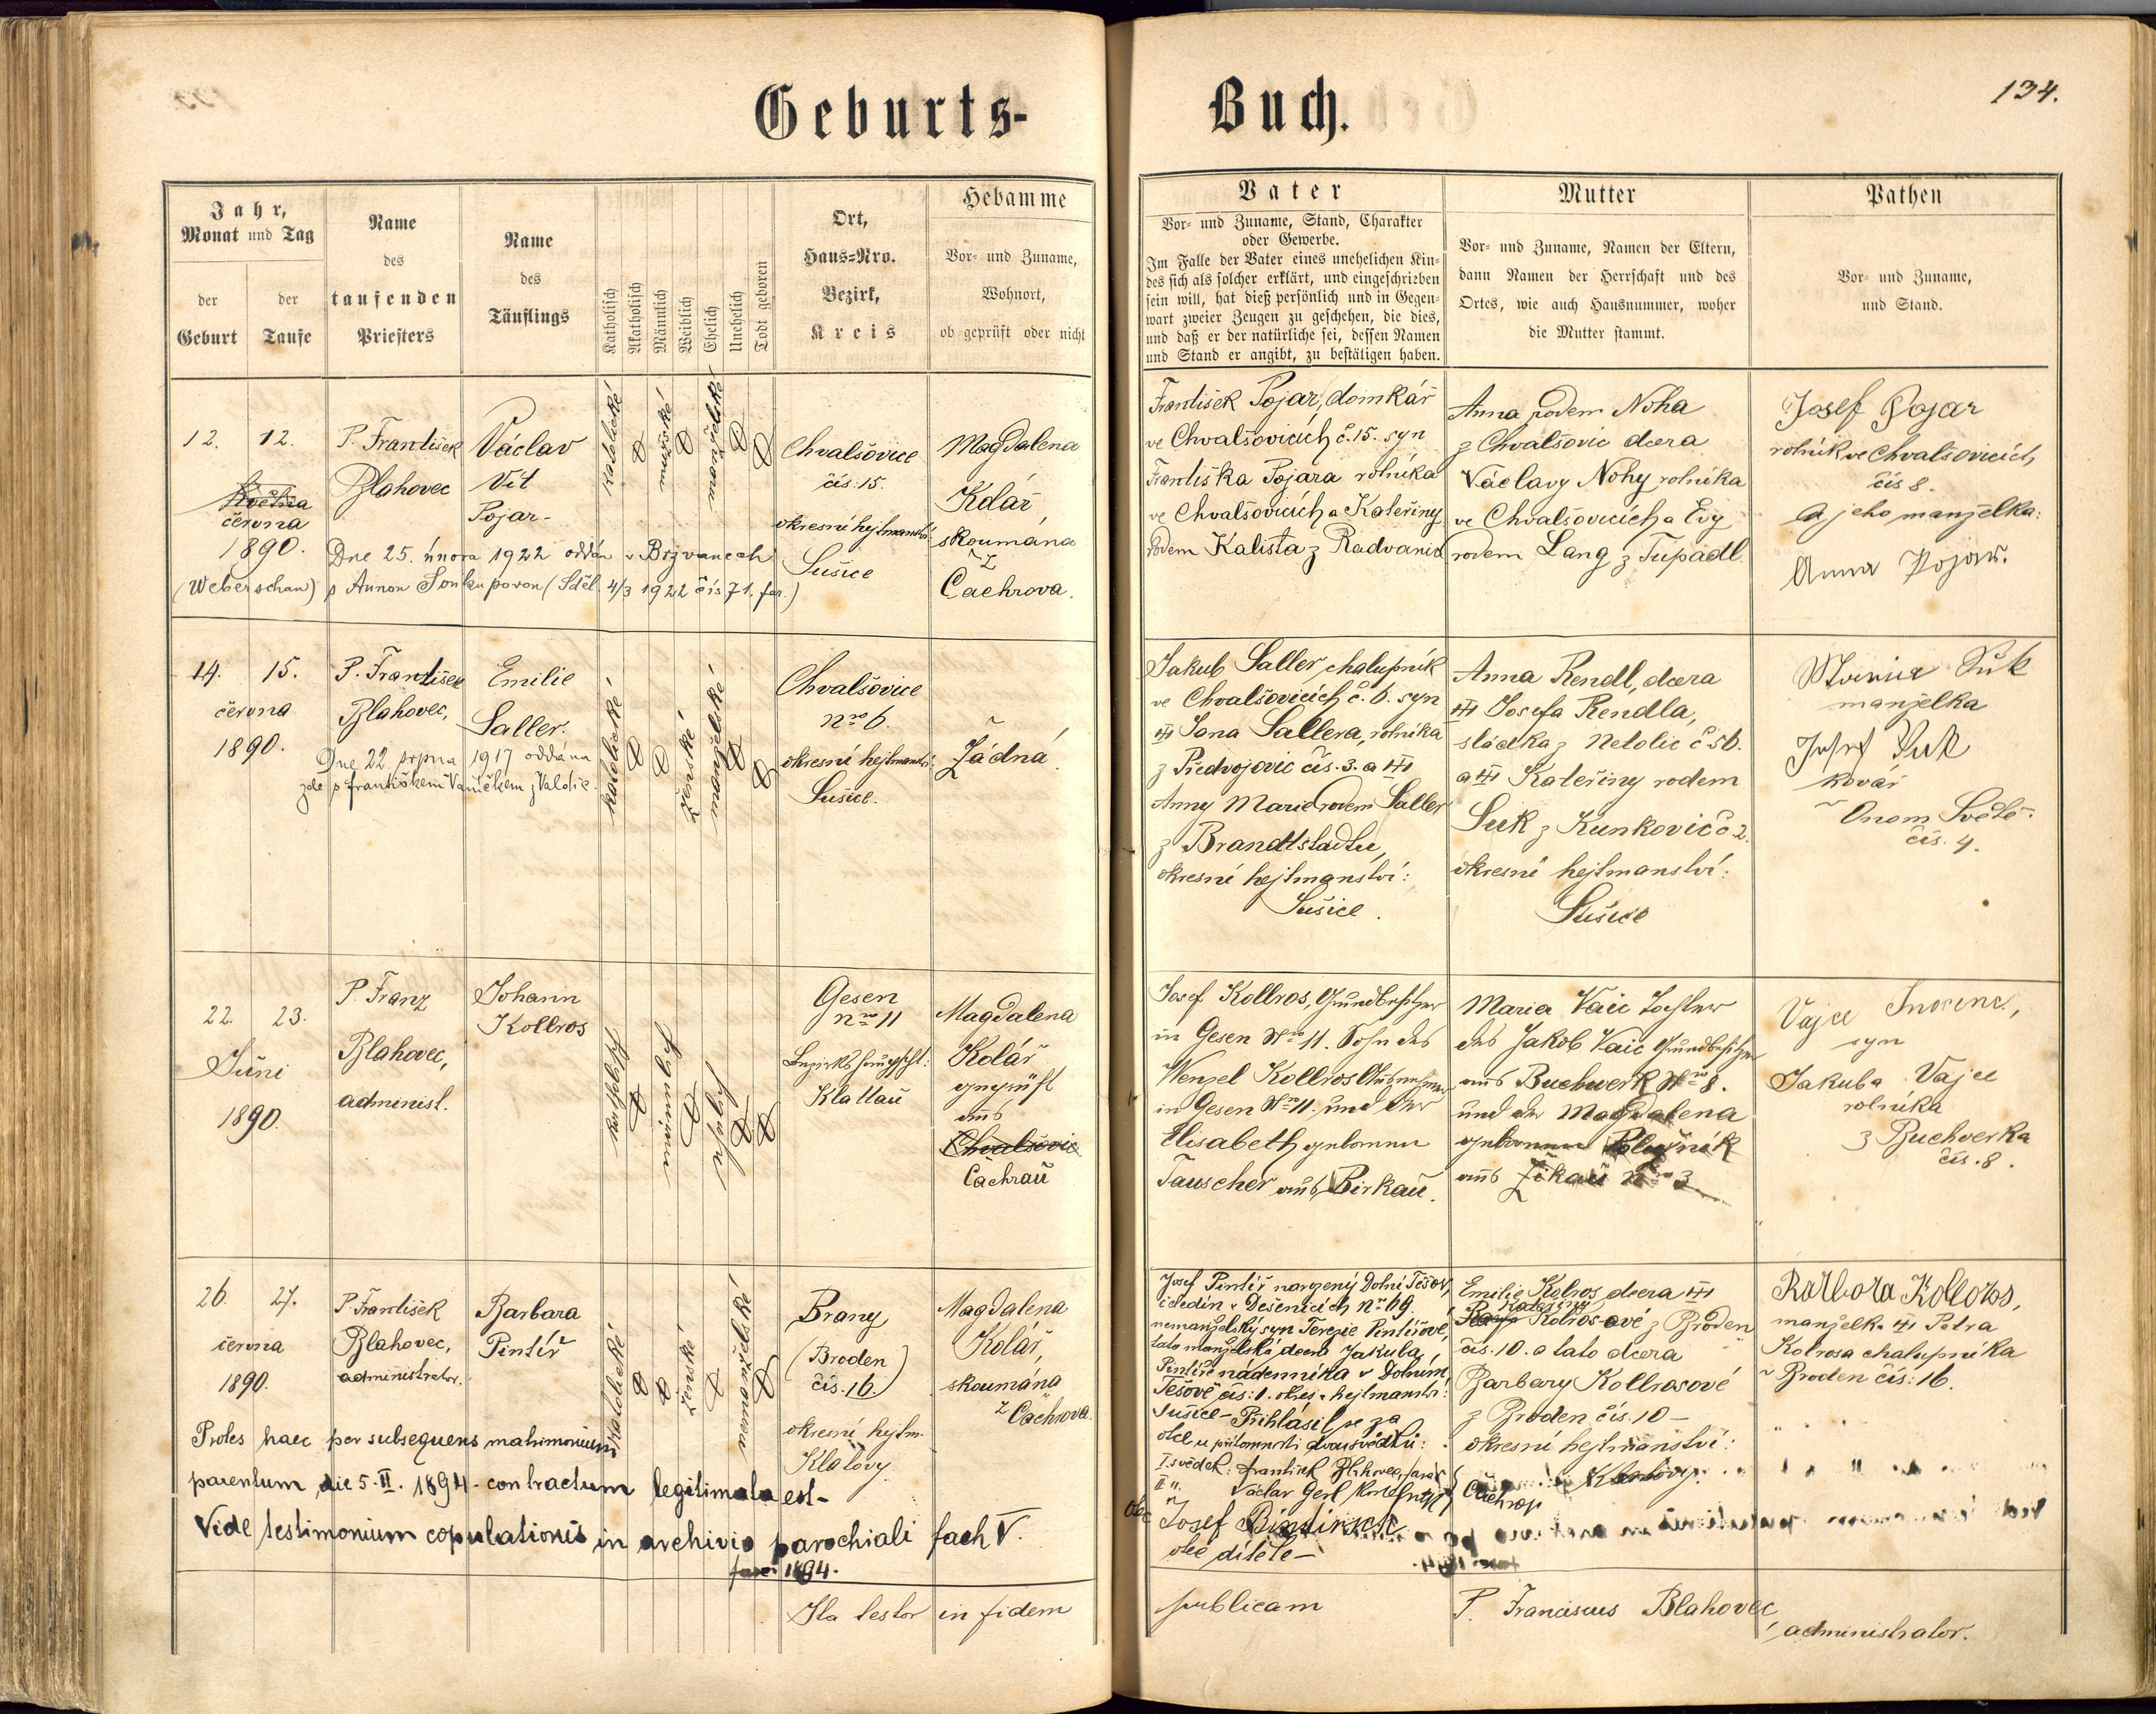 Geburts-
Buch.
134.
Jahr,
Monat und Tag
der
Geburt
der
Taufe
Name
des
taufenden
Priesters
Name
des
Täuflings
Katholisch
Akatholisch
Männlich
Weiblich
Ehelich
Unehelich
Todt geboren
Ort,
Haus-Nro.
Bezirk,
Kreis
Hebamme
Vor- und Zuname,
Wohnort,
ob geprüft oder nicht
Vater
Vor- und Zuname, Stand, Charakter
oder Gewerbe.
Im Falle der Vater eines unehelichen Kin-
des sich als solcher erklärt, und eingeschrieben
sein will, hat dieß persönlich und in Gegen-
wart zweier Zeugen zu geschehen, die dies,
und daß er der natürliche sei, dessen Namen
und Stand er angibt, zu bestätigen haben.
Mutter
Vor- und Zuname, Namen der Eltern,
dann Namen der Herrschaft und des
Ortes, wie auch Hausnummer, woher
die Mutter stammt.
Pathen
Vor- und Zuname,
und Stand.
12. 12.
Května
června
1890.
P. František
Blahovec
Václav
Vít
Pojar-
katolické
mužské
manželské
Chvalšovice
čís: 15.
okresní hejtmanství
Sušice
Magdalena
Kolář,
skoumána
z
Čachrova.
Dne 25. února 1922 oddán v Břvanech
(Weberschan) s Annou (Sděl. 4/3 1922 čís. 71. far.)
František Pojar, domkář
ve Chvalšovicích č. 15. syn
Františka Pojara rolníka
ve Chvalšovicích a Kateřiny
rodem Kalista z Radvanic
Anna rodem Noha
z Chvalšovic dcera
Václavy Nohy rolníka
ve Chvalšovicích a Evy
rodem Lang z Tupadl.
Josef Pojar
rolník ve Chvalšovicích
čís 8.
a jeho manželka:
Anna Pojar.
14. 15.
června
1890.
P. František
Blahovec,
Emilie
Saller.
katolické
ženské
manželské
Chvalšovice
nro 6.
okresní hejtmanství:
Sušice.
Žádná.
Dne 22. srpna 1917 oddána
zde s Františkem Vaníčkem z Valdic.
Jakub Saller, chalupník
ve Chvalšovicích č. 6. syn
††† Jana Sallera, rolníka
z Předvojovic čís. 3. a †††
Anny Marie rodem Saller
z Brandtstadtu,
okresní hejtmanství:
Sušice.
Anna Rendl, dcera
††† Josefa Rendla,
sládka z Netolic č 56.
a ††† Kateřiny rodem
Suk z Kunkovic č 2.
okresní hejtmanství:
Sušice
Marie Suk
manželka
Josef Suk
kovář
Onom Světě.
čís. 4.
22. 23.
Juni
1890.
P. Franz
Blahovec,
administ.
Johann
Kollros
katholisch
männlich
ehelich
Gesen
nro 11
Bezirkshauptscht:
Klattau
Magdalena
Kolář
geprüft
aus
Chvalšovic
Čachrau
Josef Kollros, Grundbesitzer
in Gesen Nro 11. Sohn des
Wenzel Kollros Ausnehmer
in Gesen Nro 11. und der
Elisabeth geborenen
Tauscher aus Birkau.
Maria Vaic Tochter
des Jakob Vaic Grundbesitzer
aus Buchwerk Nro 8.
und der Magdalena
geborenen
aus Žikau nro 3
Vajce
syn
Jakuba Vajce
rolníka
z Buchverka
čís. 8.
26. 27.
června
1890.
P. František
Blahovec,
administrator.
Barbara
Pintíř
katolické
ženské
nemanželské
Brany
(Broden)
čís. 16.
okresní hejtm.
Klatovy
Magdalena
Kolář,
skoumána
z Čachrova.
Proles haec per subsequens matrimonium
parentum die 5. II. 1894. contractum legitimata est-
Vide testimonium copulationis in archivio parochiali fach V.
1894.
Josef Pintíř narozený Dolní Těšov,
čeledín v Dešenicích nro 69.
nemanželský syn Terezie Pintířové,
tato manželská dcera Jakuba
Pintíře nádenníka v Dolním
Těšově čís: 1. okres. hejtmanství:
Sušice- Přihlásil se za
otce u přítomnosti dvou svědků:
I. svědek: František Blahovec, farář
II " Václav Gerl
Čachrov
Josef Bindirsch
otec dítěte-
Emilie Kolros dcera †††
Kateřiny
Kolros-ové z Broden
čís. 10. a tato dcera
Barbary Kollrosové
z Broden čís. 10-
okresní hejtmanství:
Klatovy.
Barbora Kolloros,
manželka ††† Petra
Kolrosa chalupníka
v Broden čís: 16.
Ita testor in fidem
publicam
P. Franciscus Blahovec,
administrator.